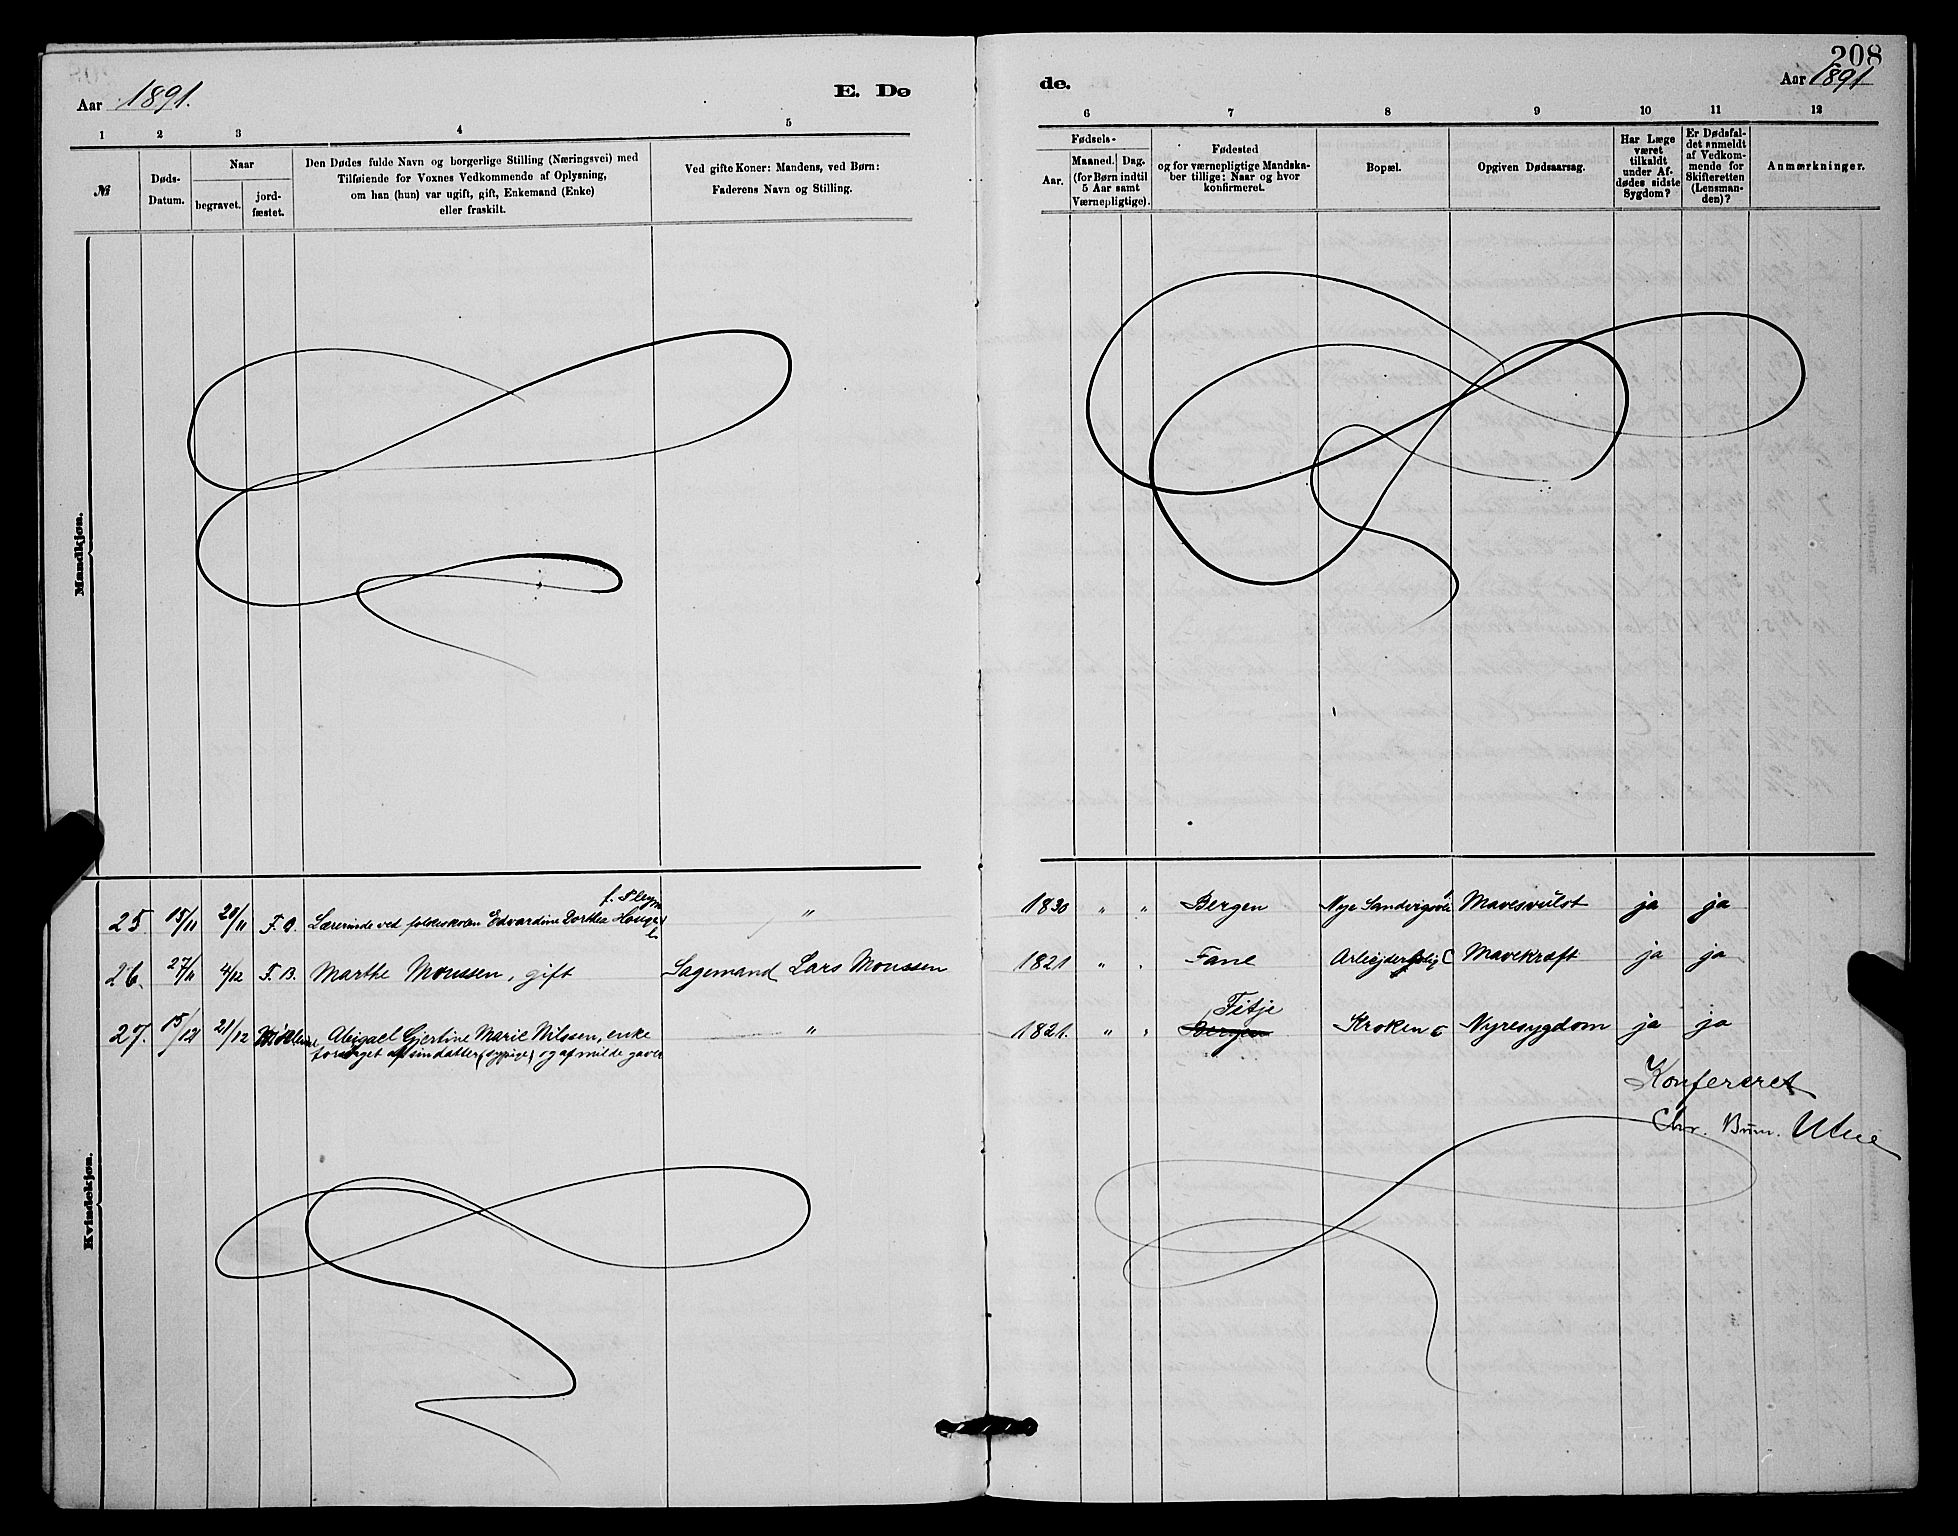 208
Aar 1891.
E. Dø
de.
Aar 1891
1 2 3 4 5
6 7 8 9 10 11 12
№
Døds-
Datum.
Naar
begravet.
jord-
fæstet.
Den Dødes fulde Navn og borgerlige Stilling (Næringsvei) med
Tilføiende for Voxnes Vedkommende af Oplysning,
om han (hun) var ugift, gift, Enkemand (Enke)
eller fraskilt.
Ved gifte Koner: Mandens, ved Børn:
Faderens Navn og Stilling.
Fødsels-
Aar.
Maaned. Dag.
(for Børn indtil
5 Aar samt
Værnepligtige).
Fødested
og for værnepligtige Mandska-
ber tillige: Naar og hvor
konfirmeret.
Bopæl.
Opgiven Dødsaarsag.
Har Læge
været
tilkaldt
under Af-
dødes sidste
Sygdom?
Er Dødsfal-
det anmeldt
af Vedkom-
mende for
Skifteretten
(Lensman-
den)?
Anmærkninger.
Mandkjøn.
Kvindekjøn.
f. Pleym
25. 15/11 20/11 F. B. Lærerinde ved folkeskolen Edvardine Dorthea Hauge " 1830 " " Bergen Nye Sandvigsvei Mavesvulst ja ja
26. 27/11 4/12 F. B. Marthe Monssen, gift Sagemand Lars Monssen 1821 " " Fane Arbeiderbolig C Mavekræft ja ja
Fitje
27. 15/12 21/12 Abigael Gjertine Marie Nilssen, enke " 1821. " " Bergen Kroken 5 Nyresygdom ja ja
forsørget af sin datter (sypige) og af milde gaver
Konfereret
Chr. Brun. Utne